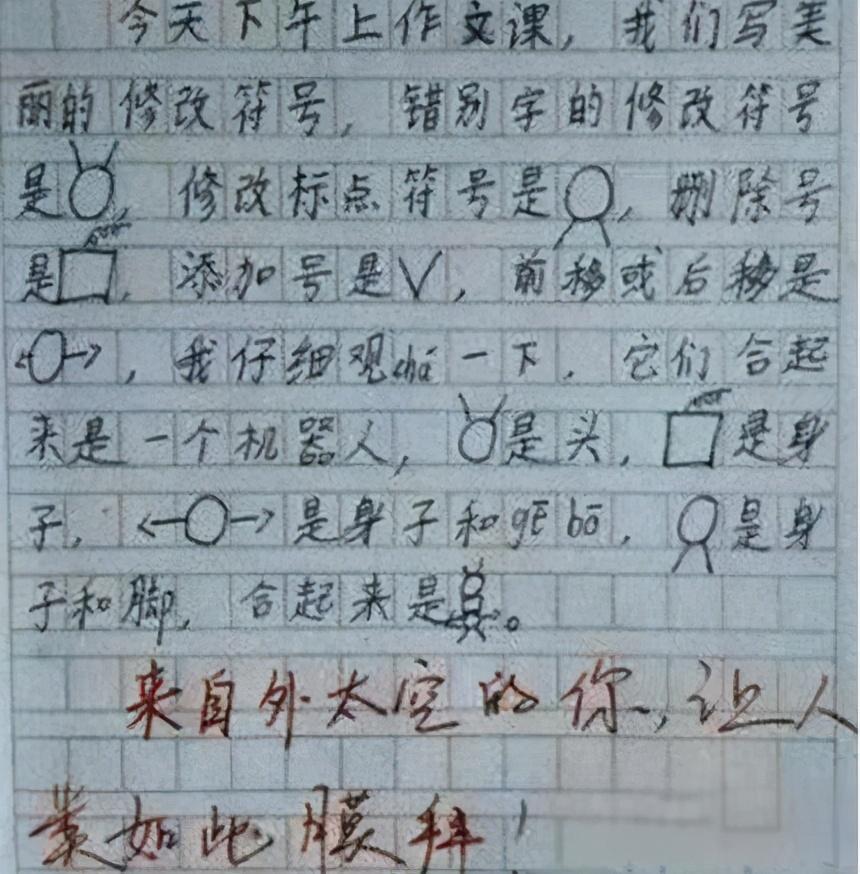 今天下午上作文课，我们写美
丽的修改符号，错别字的修改符号
是，修改标点符号是，删除号
是，添加号是∨，前移或后移是
，我仔细观chá一下，它们合起
来是一个机器人，是头，是身
子，是身子和gē bō，是身
子和脚，合起来是。
来自外太空的你，让人
如此膜拜！